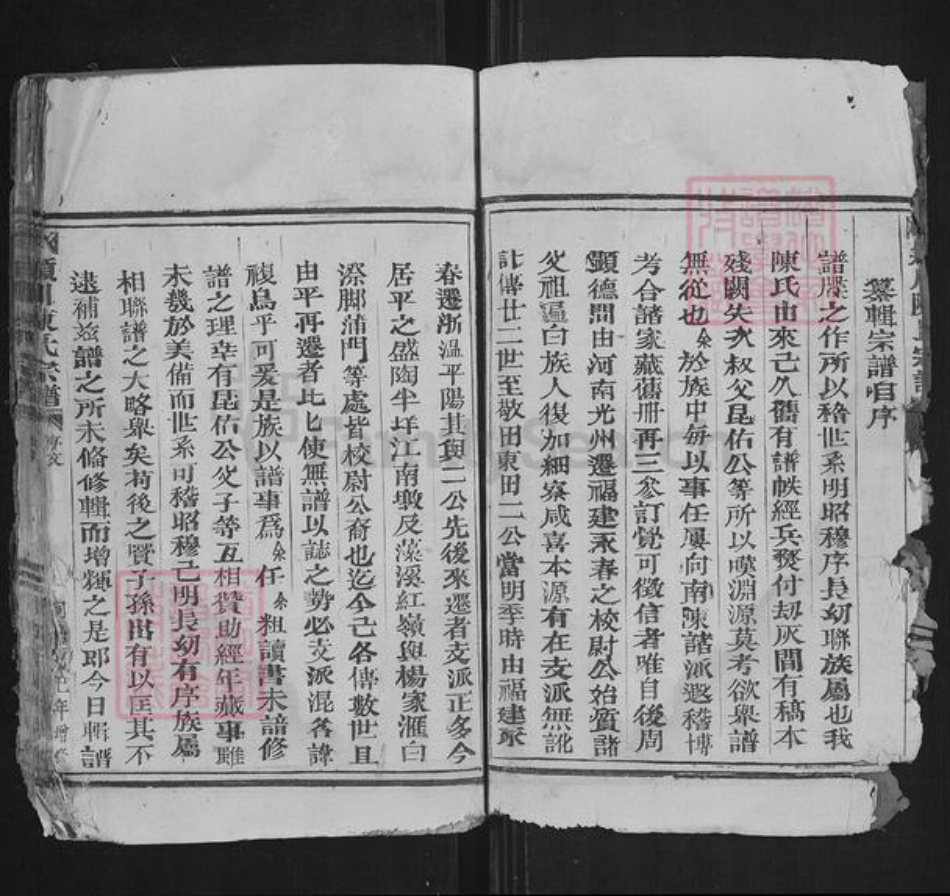 纂輯宗譜自序
譜牒之作所以稽世系明昭穆序長幼聯族屬也我
陳氏由來已久舊有譜帙經兵燹付劫灰間有稿本
殘闕失次叔父昆佑公等所以嘆淵源莫考欲舉譜
無從也余於族中每以事任屢向南陳諸派遐稽博
考合諸家藏舊冊再三參訂覺可徵信者唯自後周
顕德間由河南光州遷福建永春之校尉公始質諸
父祖遍白族人復加細察咸喜本源有在支派無訛
計傳廿二世至敬田東田二公當明季時由福建永
春遷浙溫平陽其與二公先後來遷者支派正多今
居平之盛陶半垟江南墩及藻溪紅嶺與楊家滙白
深脚蒲門等處皆校尉公裔也迄今已各傳數世且
由平再遷者比比使無譜以誌之勢必支派混名諱
複烏乎可爰是族以譜事為余任余粗讀書未諳修
譜之理幸有昆佑公父子等互相贊助經年蕆事雖
未幾於美備而世系可稽昭穆已明長幼有序族屬
相聯譜之大略舉矣苟後之賢子孫出有以匡其不
逮補茲譜之所未俻修輯而增輝之是耶今日輯譜
潁川陳氏宗譜 序文